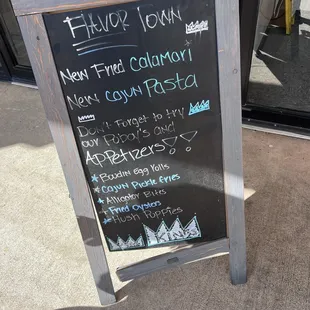 Flavor Town
New Fried Calamari
New Cajun Pasta
Don't Forget to try
our Poboy's and
Appetizers!
*Boudin Egg Rolls
*Cajun Pickle Fries
*Alligator Bites
*Fried Oysters
*Hush Puppies
KING'S